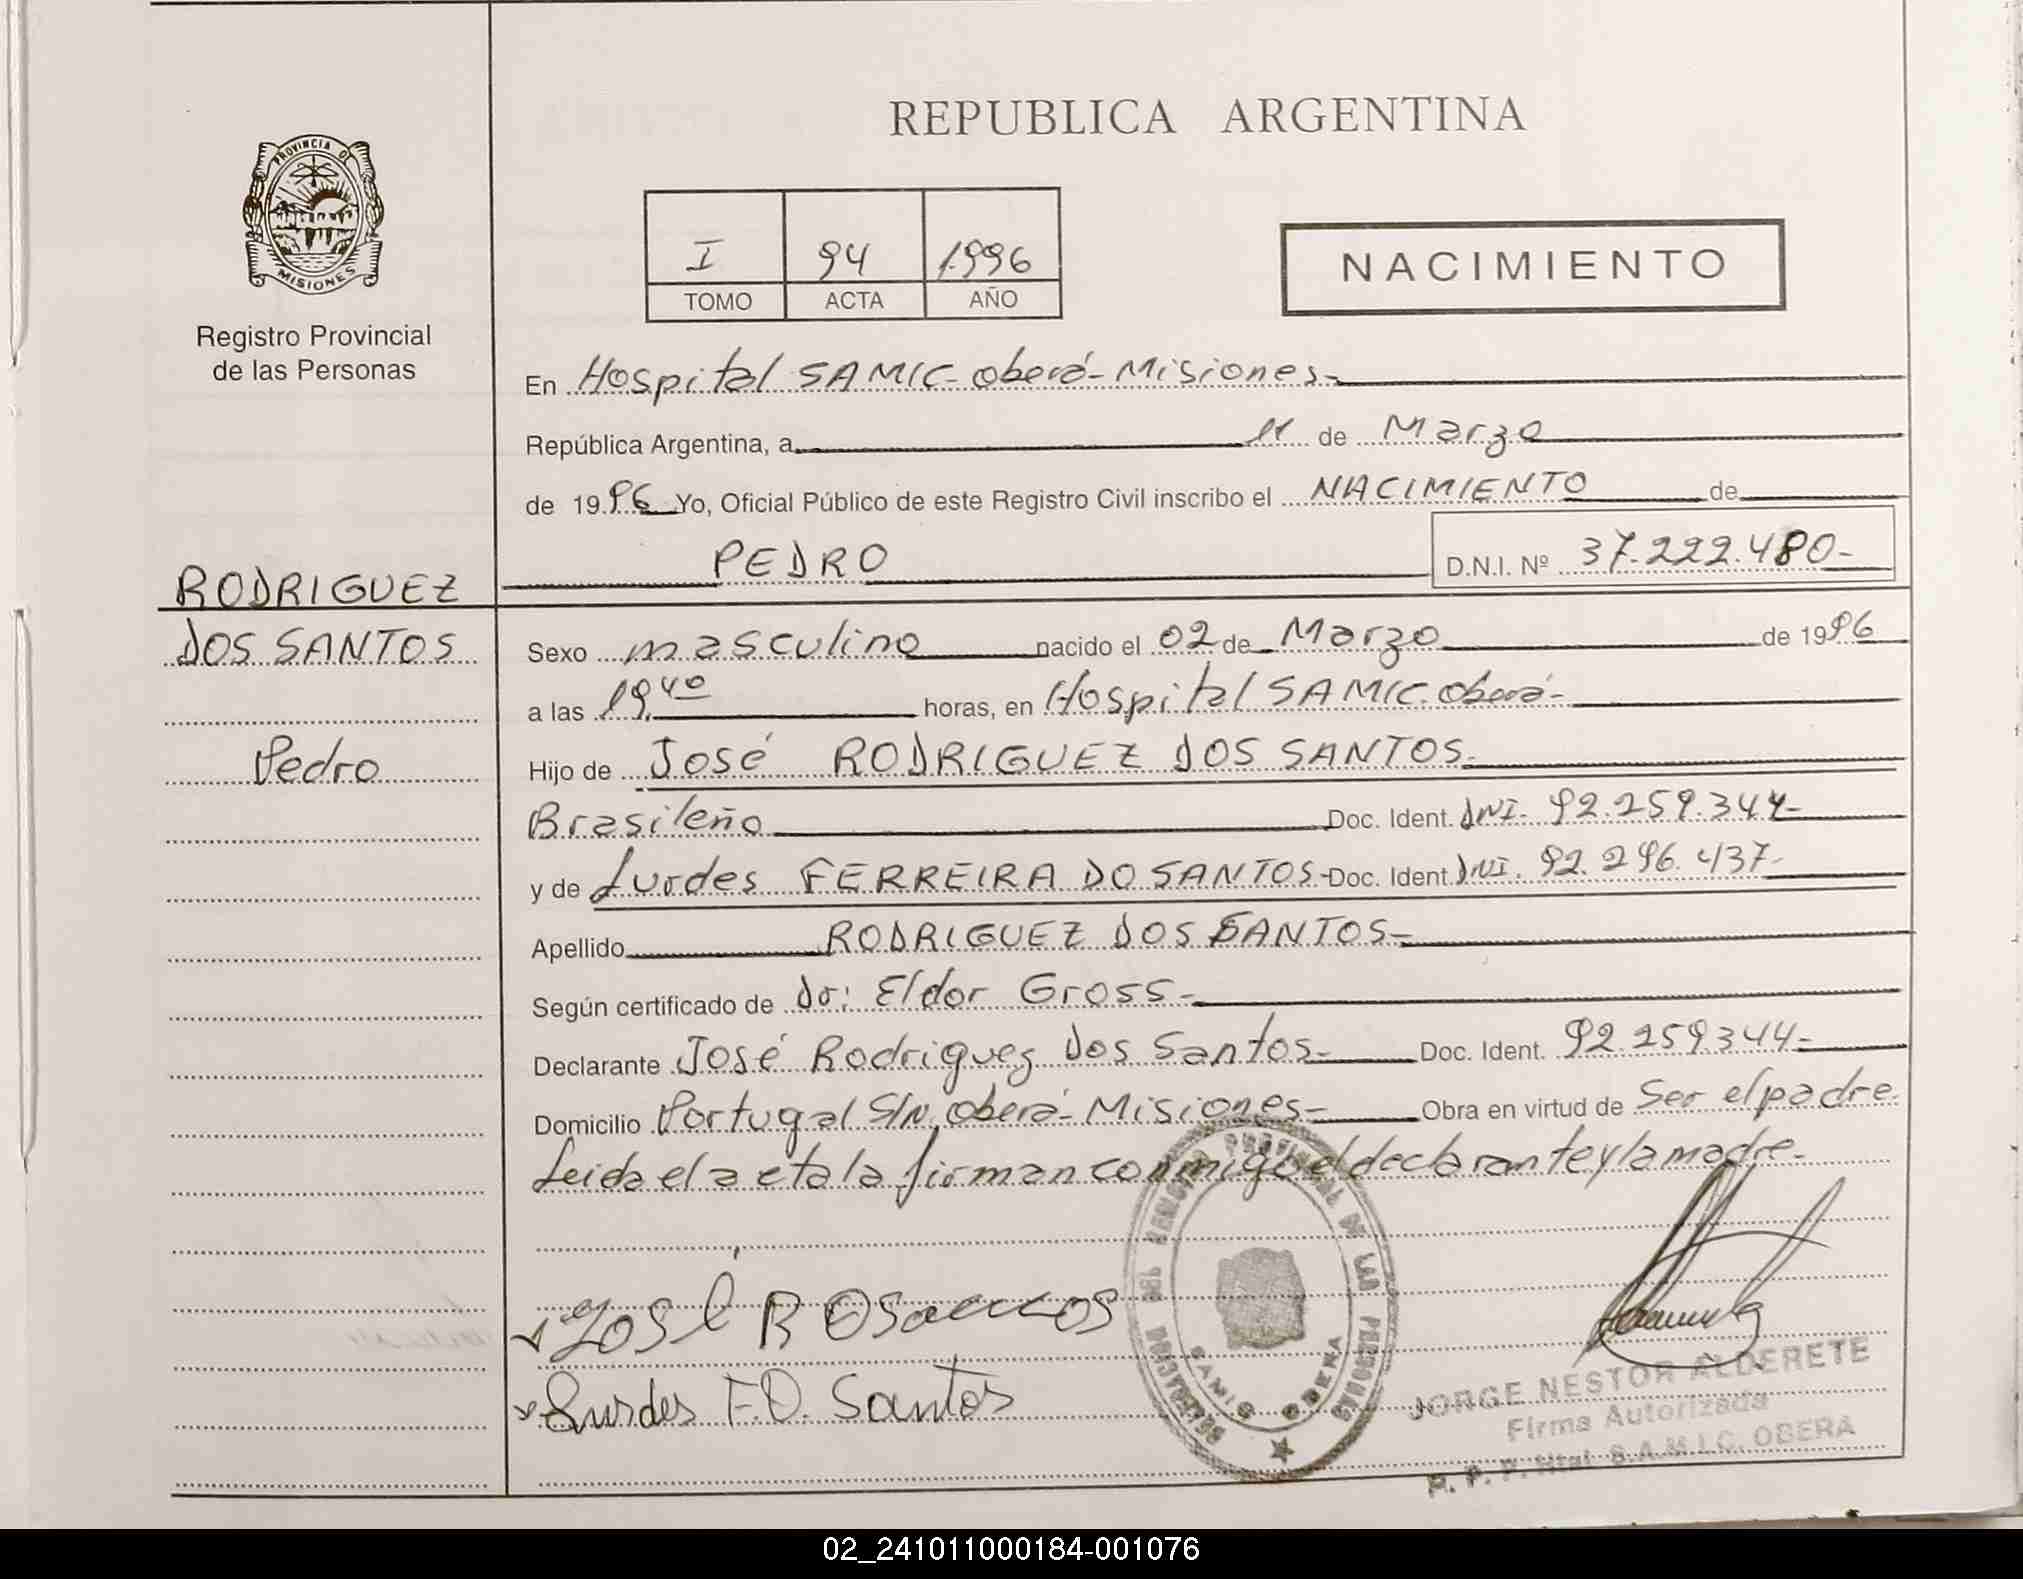 REPUBLICA ARGENTINA
PROVINCIA DE
MISIONES
Registro Provincial
de las Personas
I 94 1996
TOMO ACTA AÑO
NACIMIENTO
En Hospital SAMIC - Oberá - Misiones -
República Argentina, a 11 de Marzo
de 1996 Yo, Oficial Público de este Registro Civil inscribo el NACIMIENTO de
PEDRO D.N.I. Nº 37.222.480-
RODRIGUEZ
DOS SANTOS
Pedro
Sexo masculino nacido el 02 de Marzo de 1996
a las 19,40 horas, en Hospital SAMIC. Oberá-
Hijo de José RODRIGUEZ DOS SANTOS.
Brasileño Doc. Ident. DNI- 92.259.344-
y de Lurdes FERREIRA DO SANTOS- Doc. Ident. DNI. 92.296.437-
Apellido RODRIGUEZ DOS SANTOS-
Según certificado de Dr: Eldor Gross-
Declarante José Rodriguez Dos Santos- Doc. Ident. 92 259344-
Domicilio Portugal S/N. Oberá- Misiones- Obra en virtud de Ser el padre.
Leida el acta la firman conmigo el declarante y la madre.
José R D Santos
Lurdes F.D. Santos
DELEGACION DEL REGISTRO PROVINCIAL DE LAS PERSONAS
SAMIC OBERA
JORGE NESTOR ALDERETE
Firma Autorizada
R. P. P. Htal. S.A.M.I.C. OBERA
02_241011000184-001076